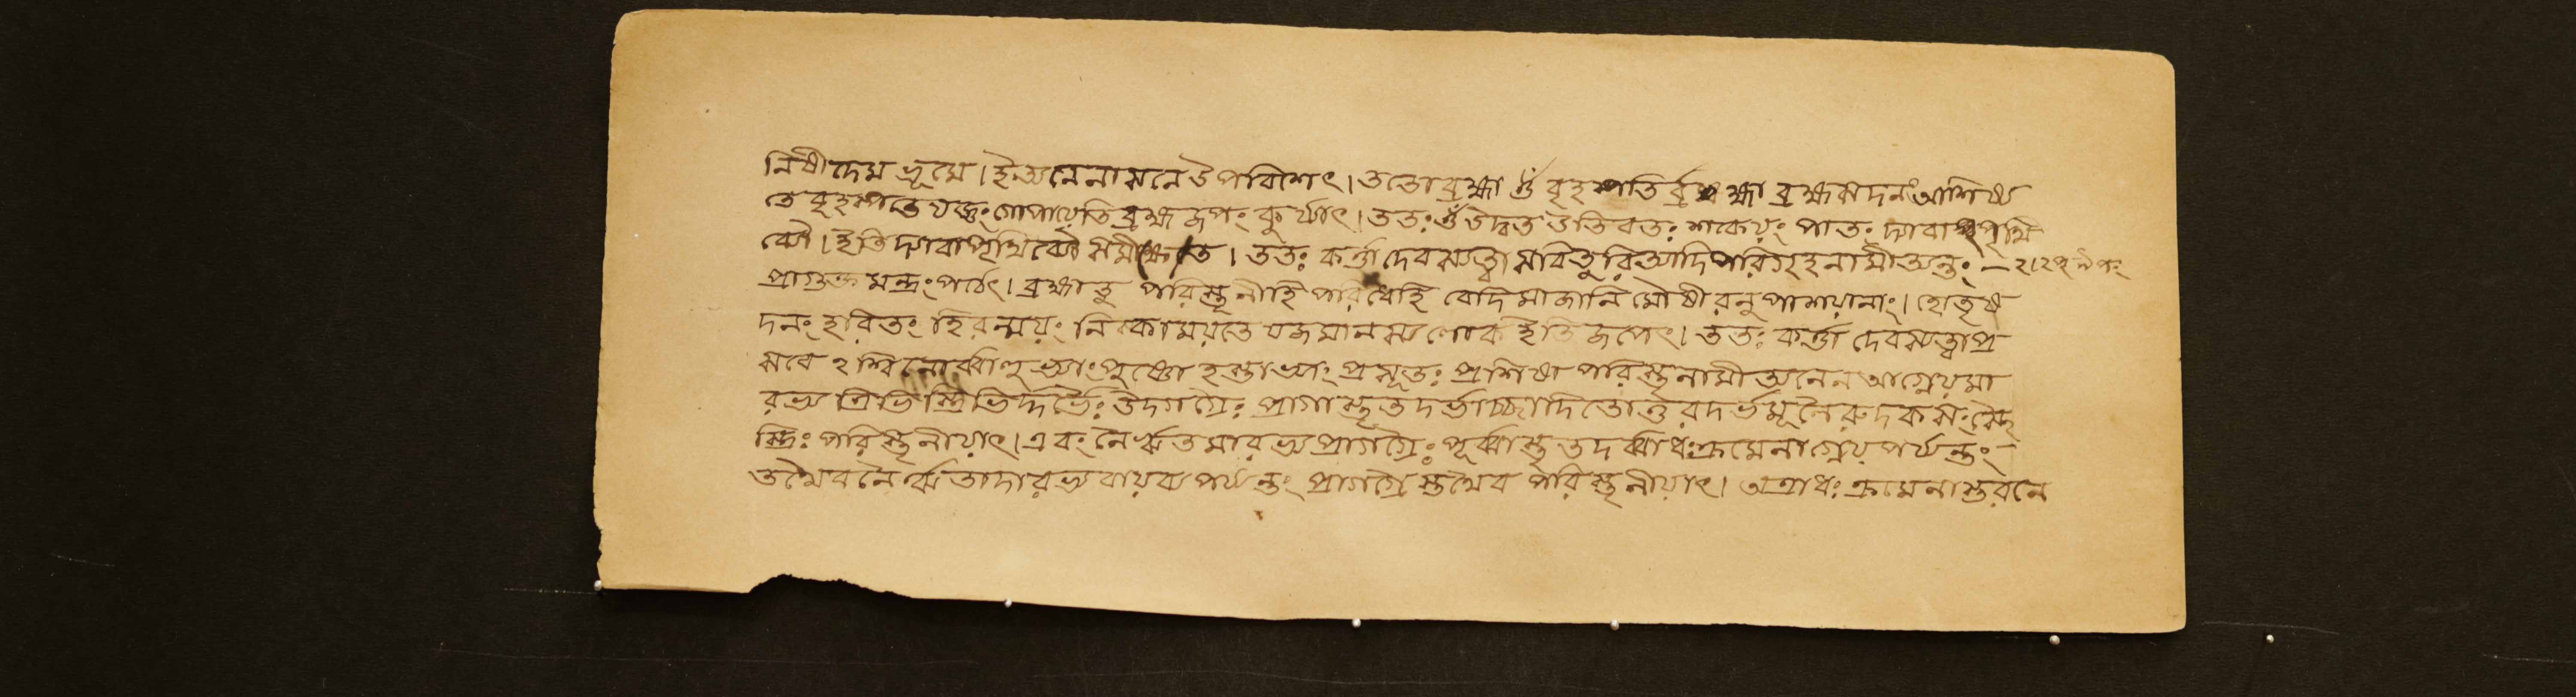 নিষীদেম ভূমে। ইঅনেনাসনে উপবিশেৎ। ততোব্রহ্মা ওঁ বৃহস্পতির্ব্রহ্মা ব্রহ্মসদনং আশিষ্য
তে বৃহস্পতে যজ্ঞং গোপায়েতি ব্রহ্মজপং কুর্য্যাৎ। ততঃ ওঁ উদ্বত উত্তিবতঃ শকেয়ং পাতং দ্যাবাপৃথি
ব্যৌ। ইতি দ্যাবাপৃথিব্যৌ সমীক্ষ্যতে। ততঃ কর্ত্তা দেবস্যত্বা সবিতুরিত্যাদি পরিগৃহনামীত্যন্তং —
প্রাগুক্ত মন্ত্রং পঠেৎ। ব্রহ্মা তু পরিস্তৃনীহি পরিধেহি বেদি মাজানি মৌষীরনুপাশয়ানাং। হোতৃষ
দনং হরিতং হিরন্ময়ং নিষ্কোময়তে যজমানস্য লোক ইতি জপেৎ। ততঃ কর্ত্তা দেবস্যত্বাপ্র
সবে ২শ্বিনোর্ব্বাহুভ্যাং পুষ্ণো হস্তাভ্যাং প্রসূতঃ প্রশিষা পরিস্তৃনামীত্যনেন আগ্নেয়মা
রভ্য ত্রিভিস্ত্রিভির্দ্দর্ভৈঃ উদগগ্রৈঃ প্রাগাস্তৃতদর্ভাচ্ছাদিতোত্তরদর্ভমূলৈরুদকসং
পরিস্তৃনীয়াৎ। এবং নৈর্ঋতমারভ্য প্রাগগ্রৈঃ পূর্ব্বাস্তৃতদর্ব্বাধঃক্রমেনাগ্নেয়পর্য্যন্তং —
তথৈব নৈর্ঋতাদারভ্য বায়ব্যপর্য্যন্তং প্রাগগ্রৈস্তথৈব পরিস্তৃনীয়াৎ। অত্রাধঃ ক্রমেনাস্তরনে